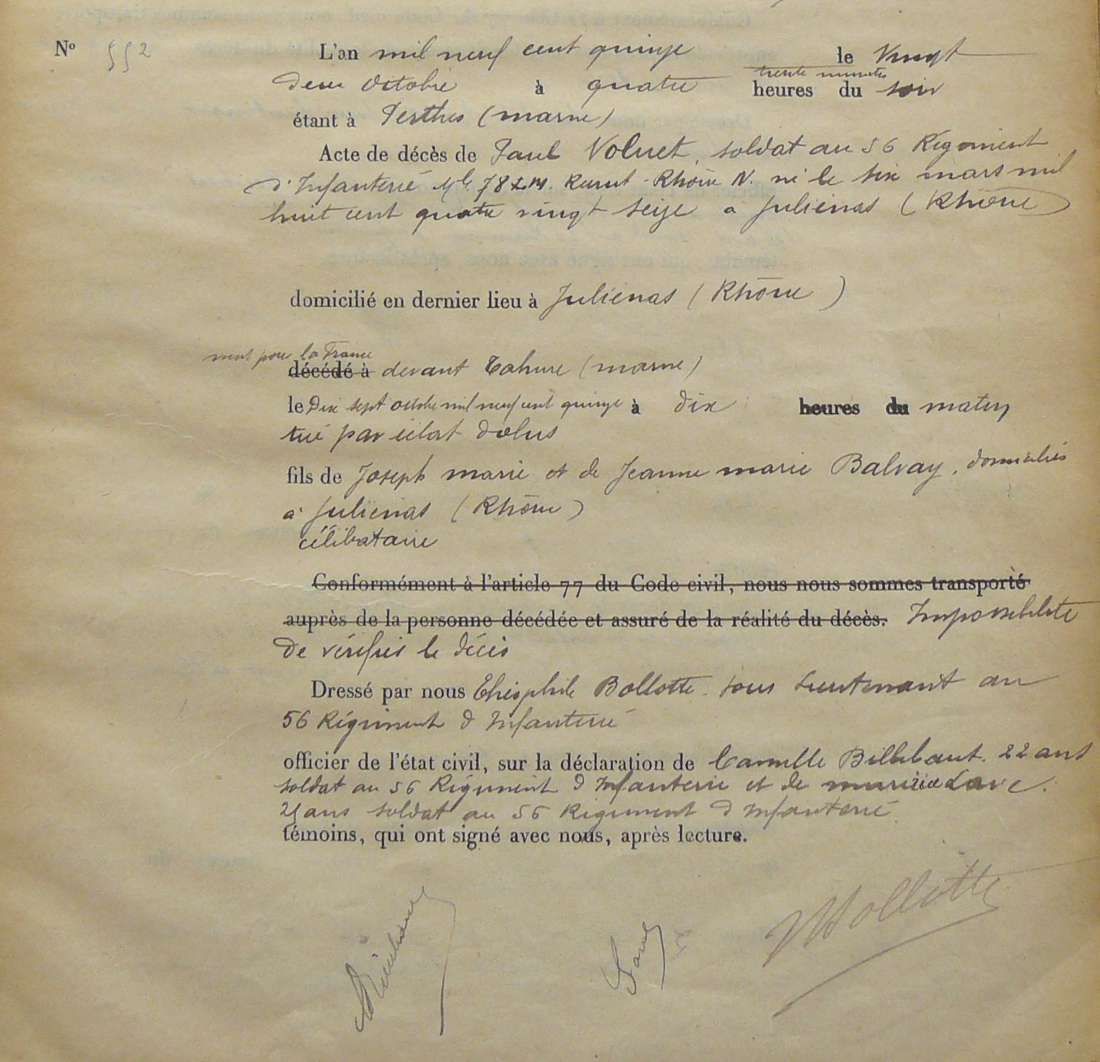 N° 552
L'an mil neuf cent quinze le Vingt
deux Octobre à quatre heures trente minutes du soir
étant à Perthes (marne)
Acte de décès de Paul Voluet, soldat au 56 Régiment
d'Infanterie Mle 78 Recrut Rhône N. né le six mars mil
huit cent quatre vingt seize à Julienas (Rhône)
domicilié en dernier lieu à Julienas (Rhône)
mort pour la France
décédé à devant Tahure (marne)
le Dix sept octobre mil neuf cent quinze à dix heures du matin
tué par éclat d'obus
fils de Joseph marie et de Jeanne marie Balvay, domiciliés
à Julienas (Rhône)
célibataire
Conformément à l'article 77 du Code civil, nous nous sommes transporté
auprès de la personne décédée et assuré de la réalité du décès. Impossibilité
De vérifier le décès
Dressé par nous Théophile Bollotte sous Lieutenant au
56 Régiment d'Infanterie
officier de l'état civil, sur la déclaration de Camille Billebaut 22 ans
soldat au 56 Régiment d'Infanterie et de
ans soldat au 56 Régiment d'Infanterie
témoins, qui ont signé avec nous, après lecture.
Bollotte